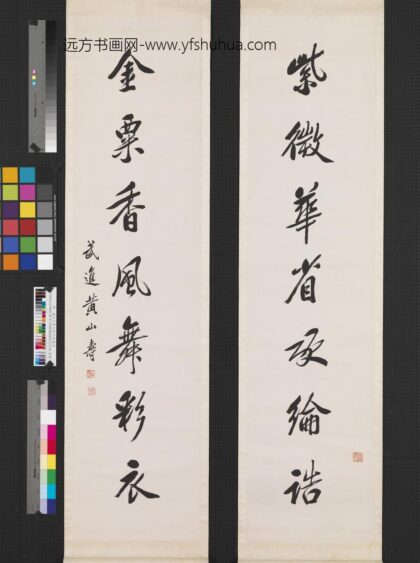 远方书画网-www.yfshuhua.com
紫微華省承綸誥
金粟香風舞彩衣
武進黄山壽